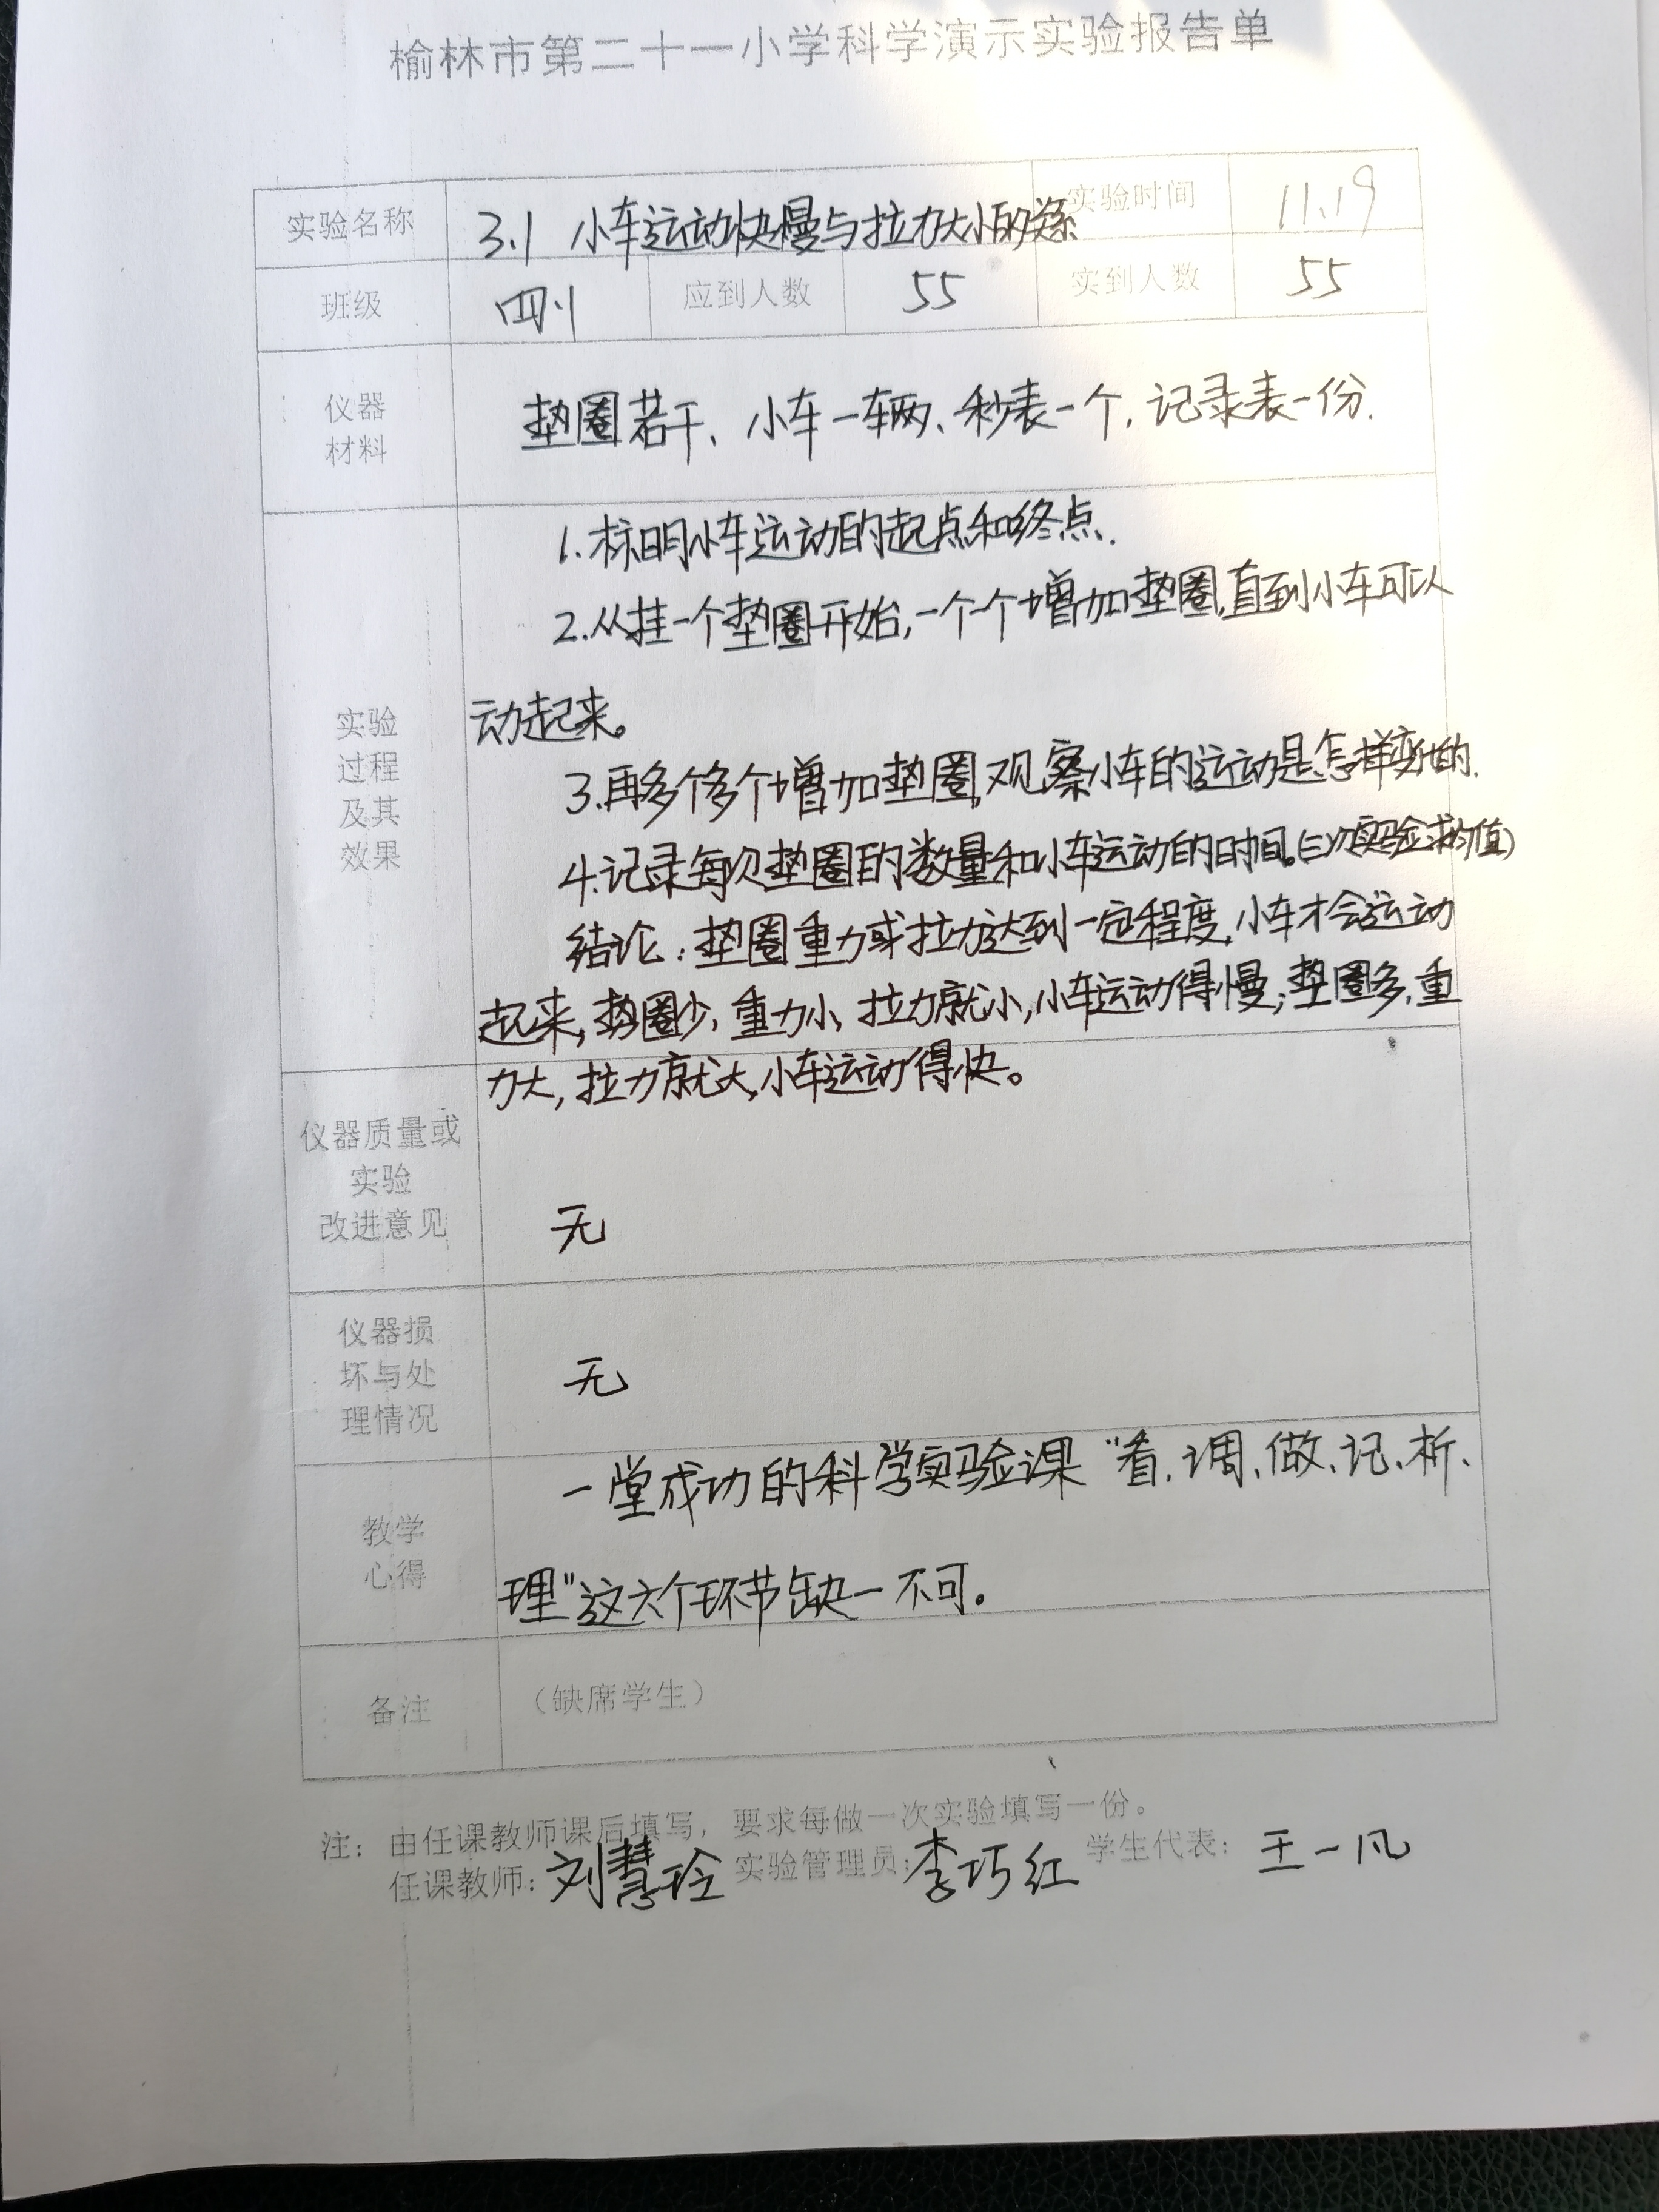 榆林市第二十一小学科学演示实验报告单
实验名称 3.1 小车运动快慢与拉力大小的关系 实验时间 11.19
班级 四.1 应到人数 55 实到人数 55
仪器
材料
垫圈若干、小车一车辆、秒表一个，记录表一份.
实验
过程
及其
效果
1.标明小车运动的起点和终点.
2.从挂一个垫圈开始,一个个增加垫圈,直到小车可以
动起来。
3.再多个多个增加垫圈,观察小车的运动是怎样变化的.
4.记录每次垫圈的数量和小车运动的时间。(三次实验求均值)
结论:垫圈重力或拉力达到一定程度,小车才会运动
起来,垫圈少,重力小,拉力就小,小车运动得慢;垫圈多,重
力大,拉力就大,小车运动得快。
仪器质量或
实验
改进意见
无
仪器损
坏与处
理情况
无
教学
心得
一堂成功的科学实验课“看、调、做、记、析、
理”这六个环节缺一不可。
备注 （缺席学生）
注：由任课教师课后填写，要求每做一次实验填写一份。
任课教师：刘慧玲 实验管理员：李巧红 学生代表：王一凡